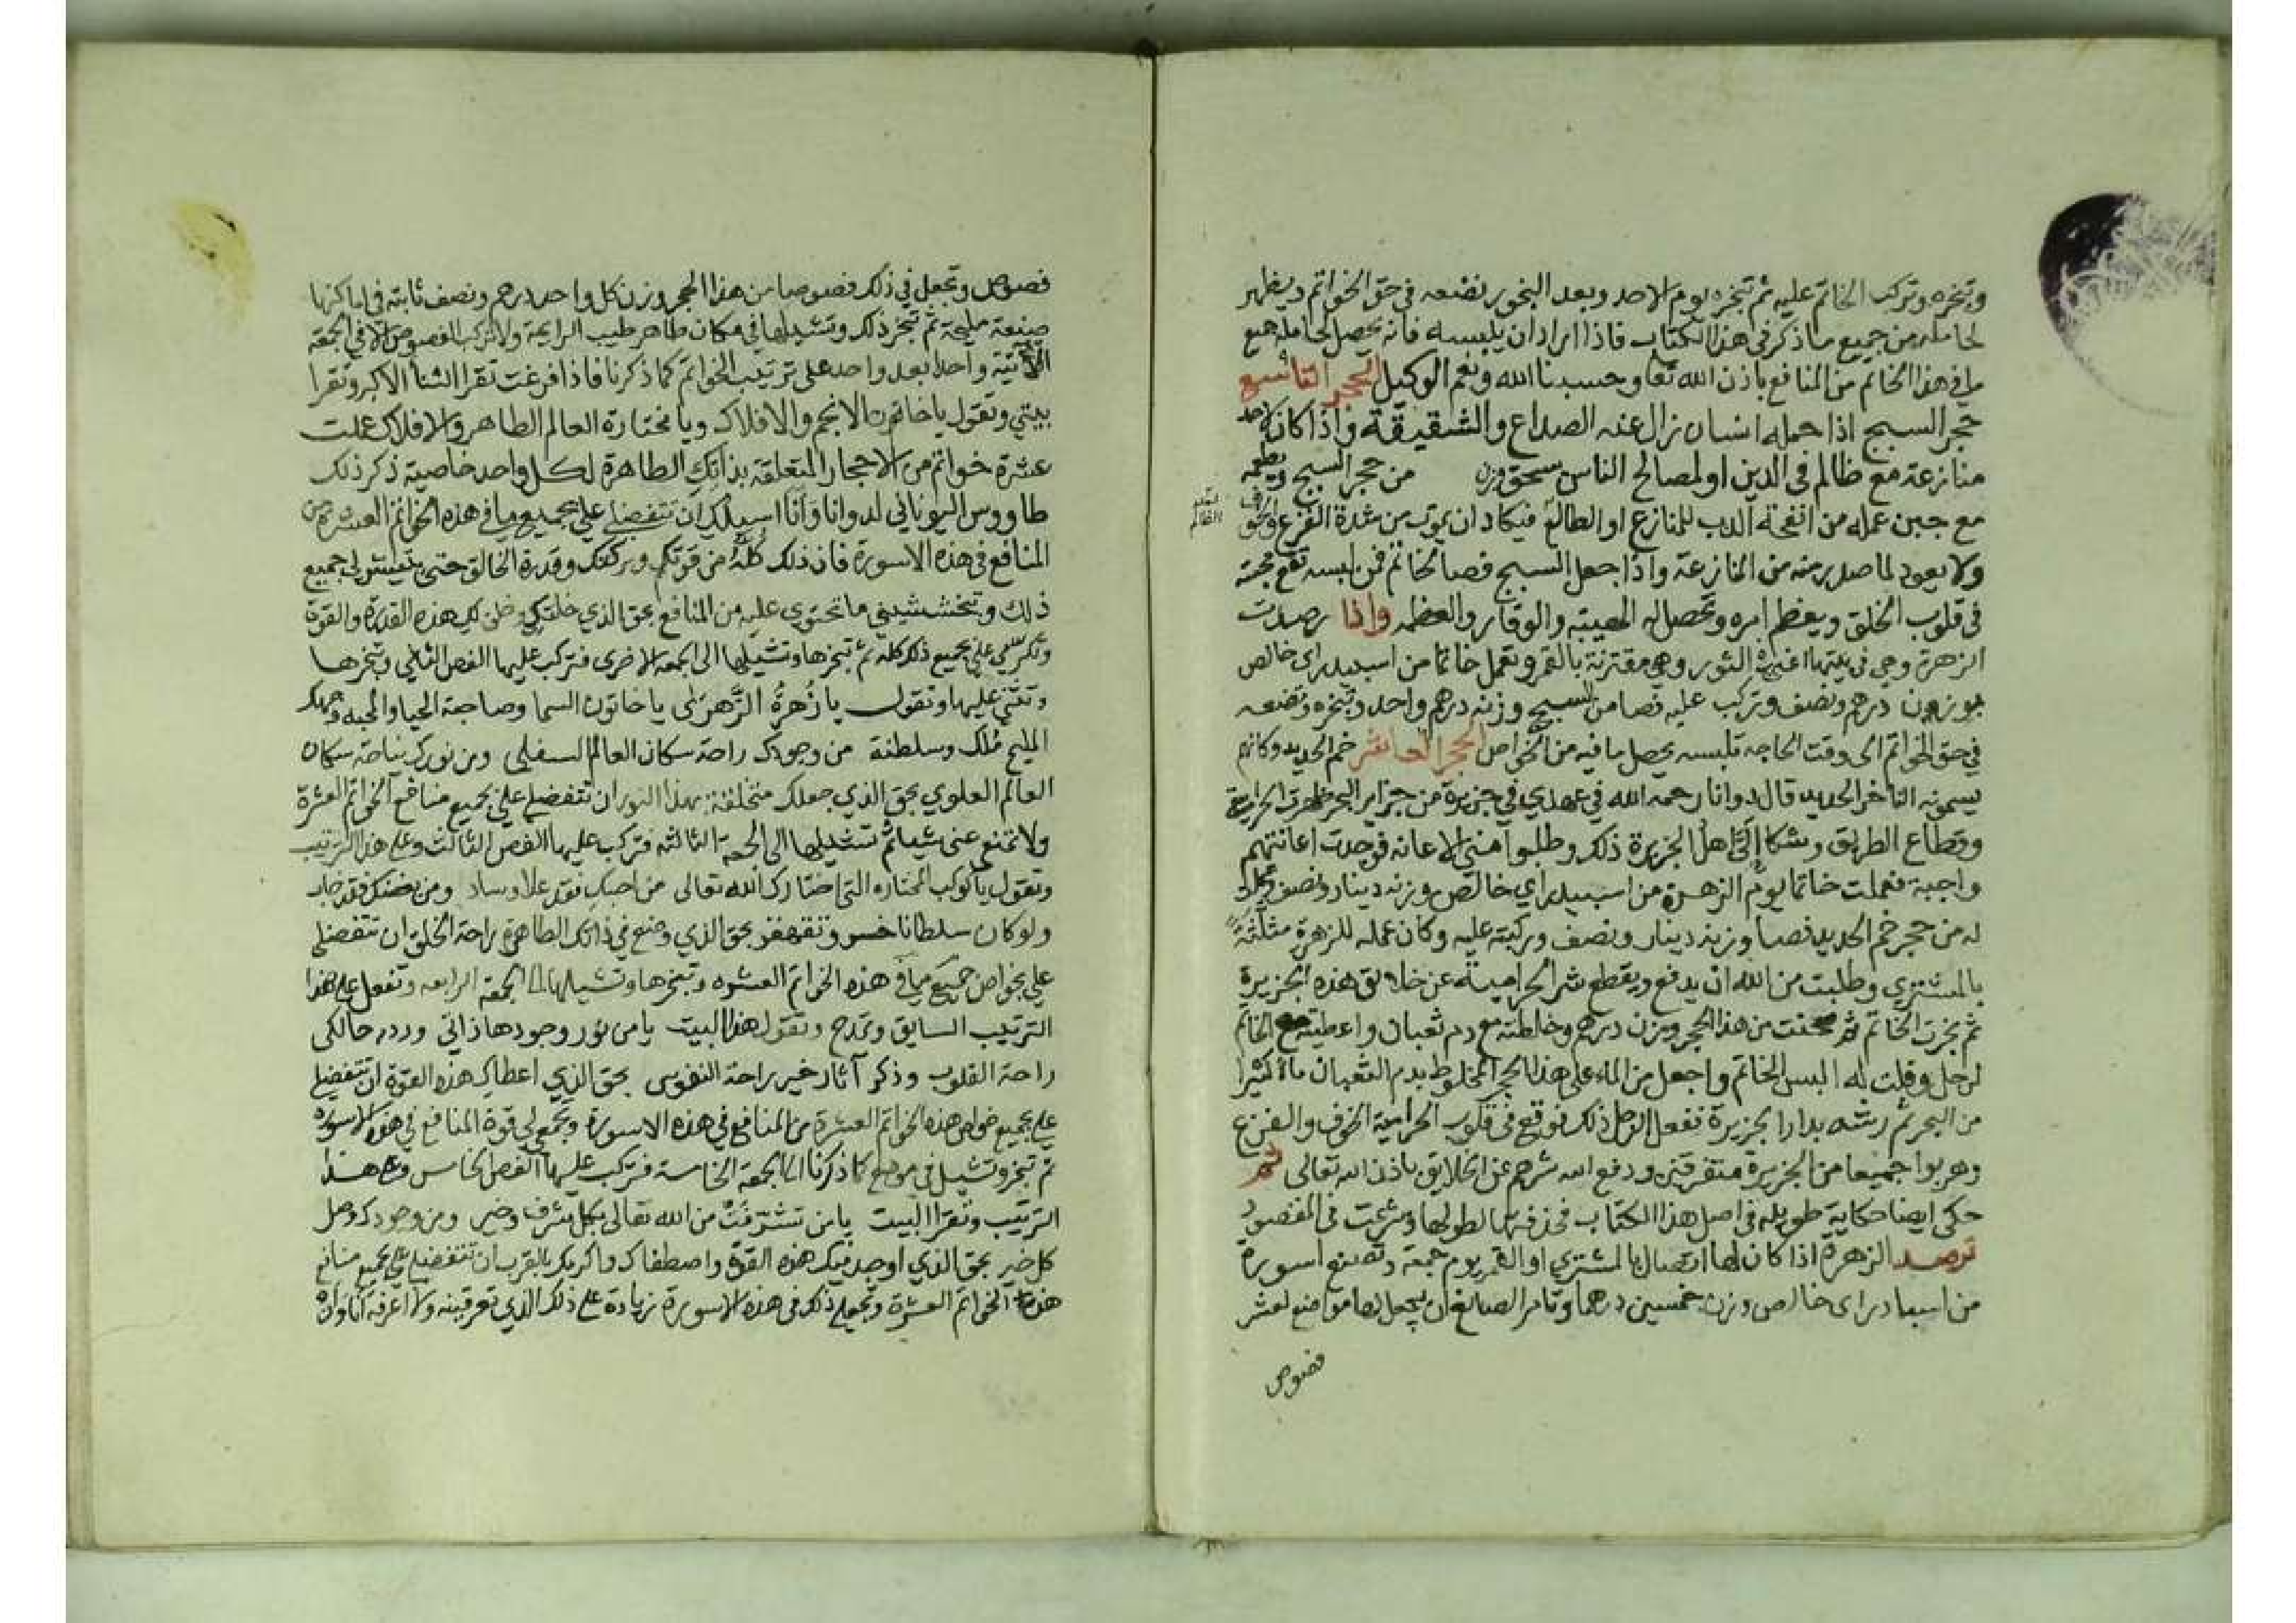 وتبخره وتركب الخاتم عليه ثم تبخره يوم الاحد وبعد البخور تضعه في حق الخواتم ويظهر
لحامله من جميع ما ذكر في هذا الكتاب فاذا اراد ان يلبسه فانه تحصل لحامله جميع
ما في هذا الخاتم من المنافع باذن الله تعا وحسبنا الله ونعم الوكيل الحجر التاسع
حجر السبج اذا حمله انسان زال عنه الصداع والشقيقة واذا كان لاحد
منازعة مع ظالم في الدين او لمصالح الناس سحق وزن من حجر السبج ويطعمه
مع جبن عمله من انفحة الدب للمنازع او الطالع فيكاد ان يموت من شدة الفزع
ولا يعود لما صدر منه من المنازعة واذا جعل السبج فصا لخاتم فمن لبسه تقع محبته
في قلوب الخلق ويعظم امره وتحصل له الهيبة والوقار والعظمه واذا رصدت
الزهرة وهي في بيتها اعني الثور وهي مقترنة بالقمر وتعمل خاتما من اسبيدراى خالص
بوزن درهم ونصف وتركب عليه فصا من السبج وزنه درهم واحد وتبخره وتضعه
في حق الخواتم الى وقت الحاجه تلبسه يحصل ما فيه من الخواص الحجر العاشر خم الحديد وكانهم
يسمونه الناخر الحديد قال دوانا رحمه الله في عهدي في جزيرة من جزاير البحر ظهرت الحرامية
وقطاع الطريق وشكا الي اهل الجزيرة ذلك وطلبوا مني الاعانه فوجدت اعانتهم
واجبة فعملت خاتما يوم الزهرة من اسبيدراي خالص وزنه دينار ونصف
له من حجر خم الحديد فصا وزنه دينار ونصف وركبته عليه وكان عمله للزهرة مثلثة
بالمشتري وطلبت من الله ان يدفع ويقطع شر الحرامية عن خلايق هذه الجزيرة
ثم بخرت الخاتم ثم سحنت من هذا الحجر وزن درهم وخلطته مع دم ثعبان واعطيته مع الخاتم
لرجل وقلت له البس الخاتم واجعل من الماء على هذا الحجر المخلوط بدم الثعبان ماء كثيرا
من البحر ثم رشه بدار الجزيرة ففعل الرجل ذلك فوقع في قلوب الحرامية الخوف والفزع
وهربوا جميعا من الجزيرة متفرقين ودفع الله شرهم عن الخلايق باذن الله تعالى ثم
حكى ايضا حكاية طويله في اصل هذا الكتاب فحذفتها لطولها وشرعت في المقصود
ترصد الزهرة اذا كان لها اتصال بالمشتري او القمر يوم جمعة وتصنع اسورة
من اسبادراى خالص وزن خمسين درهما وتامر الصايغ ان يجعل لها مواضع لعشر
فصوص
فصوص وتجعل في ذلك فصوصا من هذا الحجر وزن كل واحد درهم ونصف ثابته في اماكنها
صنعة مليحة ثم تبخر ذلك وتشيلها في مكان طاهر طيب الرايحة ولا تركب الفصوص الا في الجمعة
الآتية واحدا بعد واحد على ترتيب الخواتم كما ذكرنا فاذا فرغت تقرا الثنا الاكبر وتقرا
بيتي وتقول يا خاتون الانجم والافلاك ويا مختارة العالم الطاهر والافلاك عملت
عشرة خواتم من الاحجار المتعلقة بذاتك الطاهرة لكل واحد خاصية ذكر ذلك
طاووس اليوناني لدوانا وانا اسيلك ان تتفضلي علي بجميع ما في هذه الخواتم العشرة من
المنافع في هذه الاسورة فان ذلك كله من قوتكم وبركتك وقدرة الخالق حتى يتيسر لي جميع
ذلك وتخششيني ما تحتوى عليه من المنافع بحق الذي خلقك وخلق لك هذه القدرة والقوة
وتكرمي علي بجميع ذلك كله ثم تبخرها وتشيلها الى الجمعة الاخرى فتركب عليها الفص الثاني وتبخرها
وتثني عليها وتقول يا زهرة الزهرى يا خاتون السما وصاحبة الحيا والمحبه وجهك
المليح ملك وسلطنة من وجودك راحة سكان العالم السفلى ومن نورك بناحة سكان
العالم العلوي بحق الذي جعلك متخلفة بهذا النور ان تتفضلي علي بجميع منافع الخواتم العشرة
ولا تمنع عني شيا ثم تشيلها الى الجمعة الثالثه فتركب عليها الفص الثالث وعلى هذا الترتيب
وتقول يا كوكب المختاره التي اختارك الله تعالى من احبك فقد علا وساد ومن بغضك فقد خاب
ولو كان سلطانا خسر وتقهقر بحق الذي وضع في ذاتك الطاهرة راحة الخلق ان تتفضلي
علي بخواص جميع ما في هذه الخواتم العشره وتبخرها وتشيلها الى الجمعة الرابعه وتفعل على هذا
الترتيب السابق وتمدح وتقول هذا البيت يا من نور وجودها ذاتي وردد حالكى
راحة القلوب وذكر آثار خير راحة النفوس بحق الذي اعطاك هذه القوة ان تتفضلي
علي بجميع خواص هذه الخواتم العشرة من المنافع في هذه الاسورة وتجمعي لي قوة المنافع في هذه الاسورة
ثم تبخر وتشيل في موضع كما ذكرنا الى الجمعة الخامسة فتركب عليها الفص الخامس وعلى هذا
الترتيب وتقرا البيت يا من تشرفت من الله تعالى بكل شرف وخير ومن وجودك وصل
كل خير بحق الذي اوجد فيك هذه القوة واصطفاك واكرمك بالقرب ان تتفضلي علي بجميع منافع
هذه الخواتم العشرة وتجعلي ذلك في هذه الاسورة زيادة على ذلك الذي تعرفينه ولا اعرفه انا